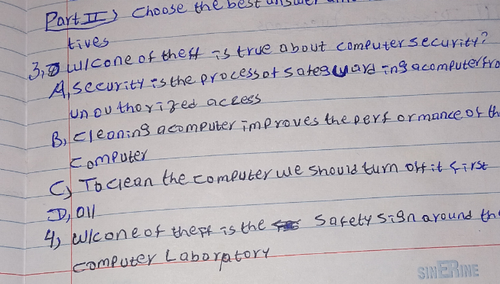 Part II) Choose the best answer
tives
3, w/c one of theff is true about computer security?
A, security is the process of safeguarding a computer fro
unouthorized access
B, cleaning a computer improves the performance of th
computer
C, To clean the computer we should turn off it first
D, all
4, w/c one of theff is the safety sign around th
computer Laboratory
SINERINE